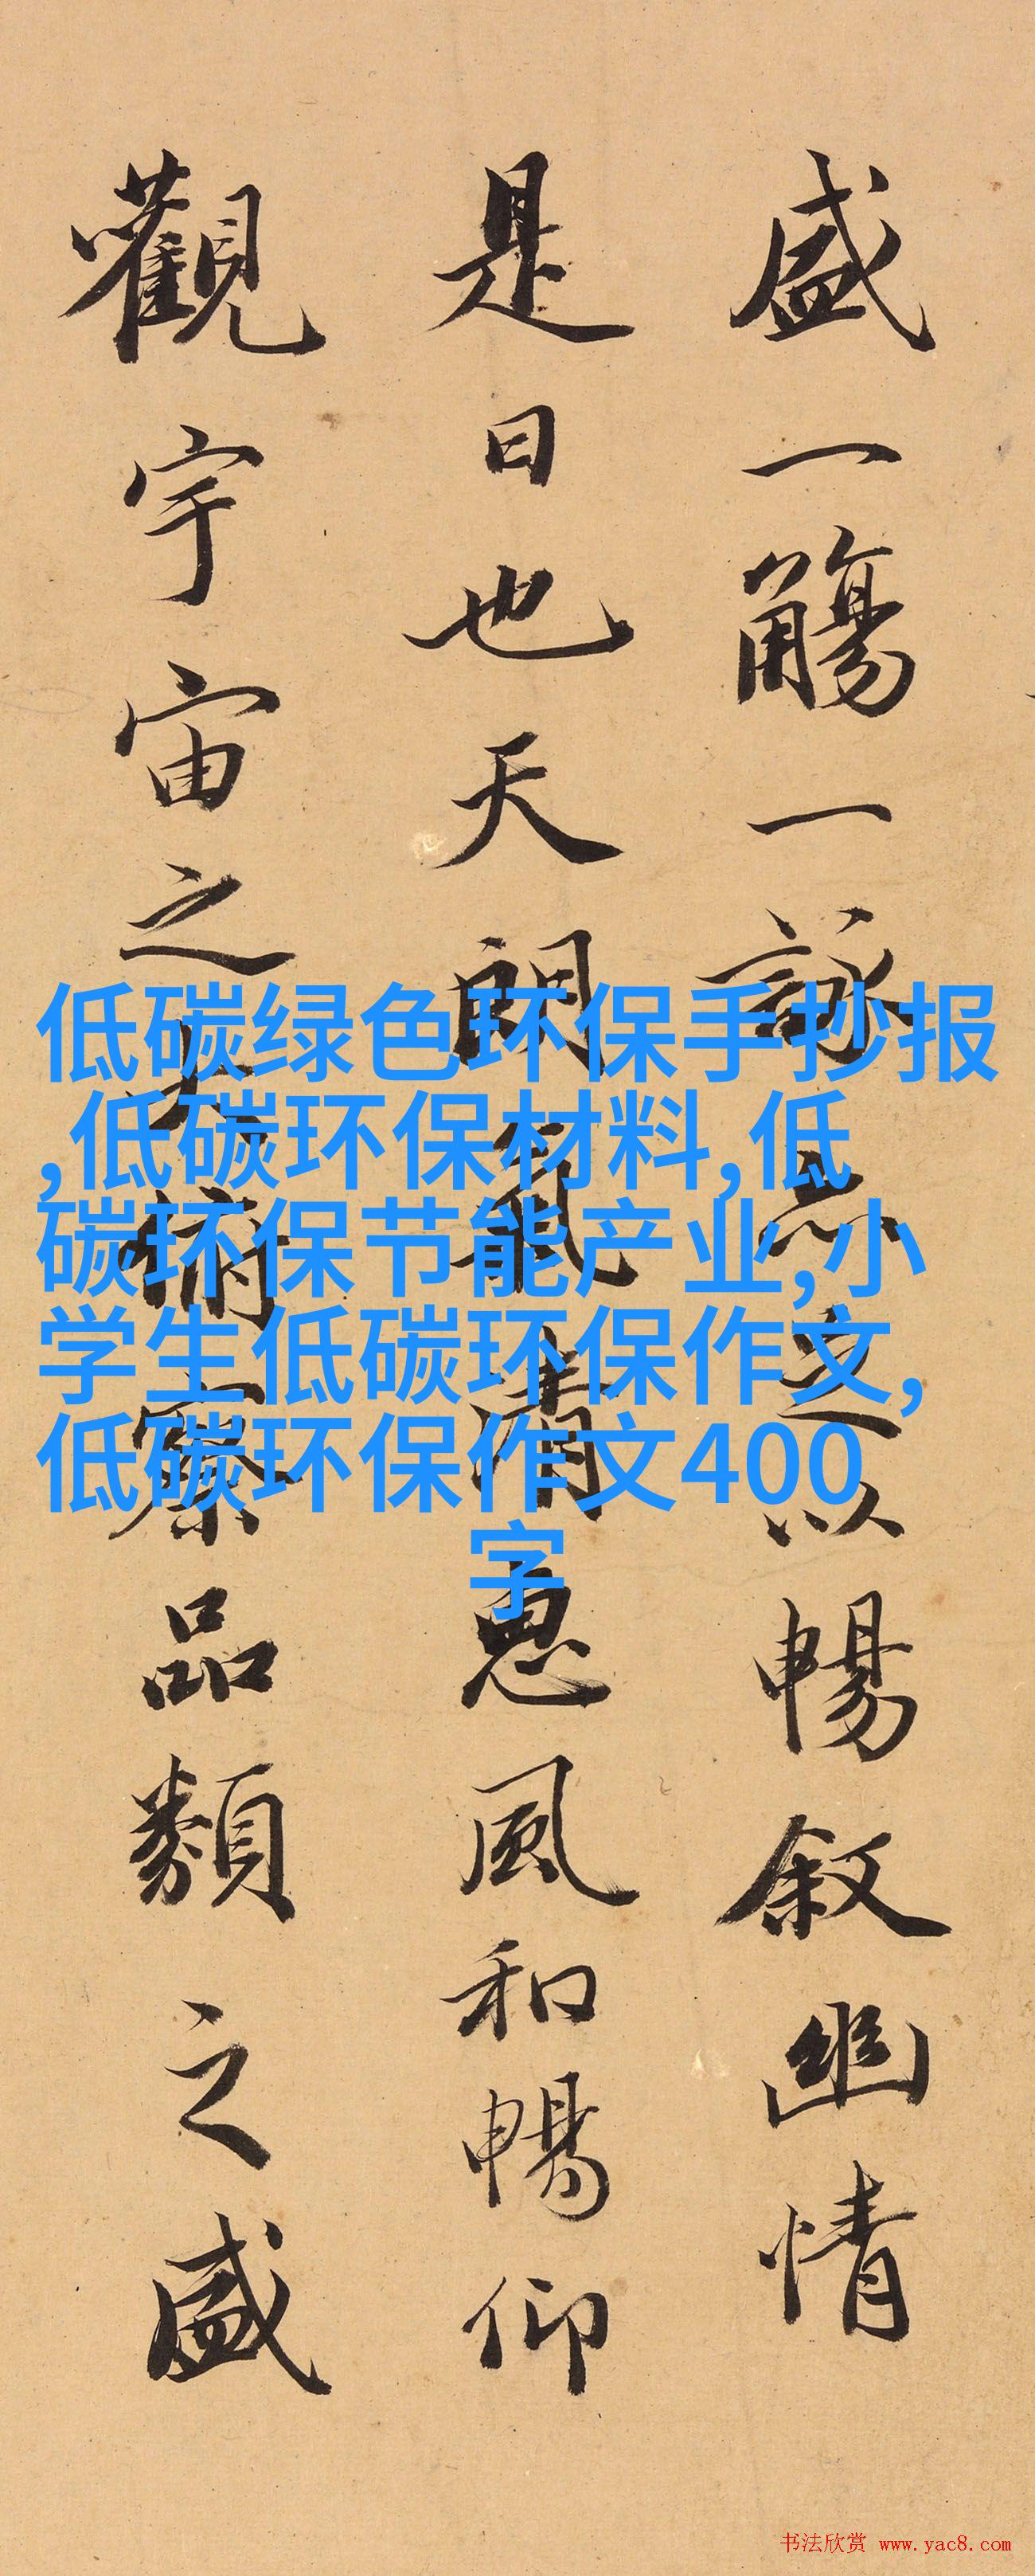 盛一觴一詠亦足以暢叙幽情
是日也天朗氣清惠風和暢仰
觀宇宙之大俯察品類之盛
低碳绿色环保手抄报
,低碳环保材料,低
碳环保节能产业,小
学生低碳环保作文,
低碳环保作文400
字
书法欣赏 www.yac8.com